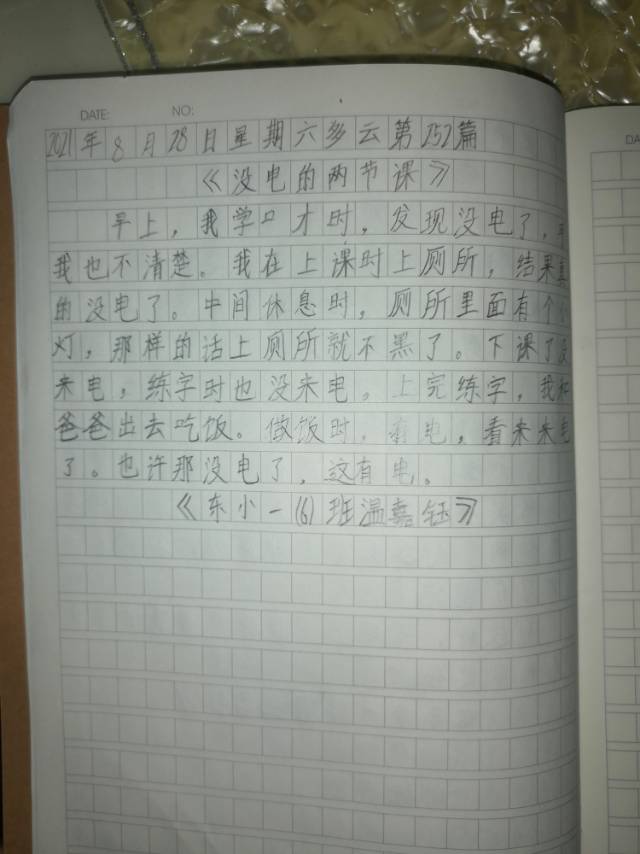 DATE: NO:
2021年8月28日星期六多云第252篇
《没电的两节课》
早上，我学口才时，发现没电了，
我也不清楚。我在上课时上厕所，结果真
的没电了。中间休息时，厕所里面有个小
灯，那样的话上厕所就不黑了。下课了没
来电，练字时也没来电。上完练字，我和
爸爸出去吃饭。做饭时，有电，看来来电
了。也许那没电了，这有电。
《东小一(6)班温嘉钰》
DA